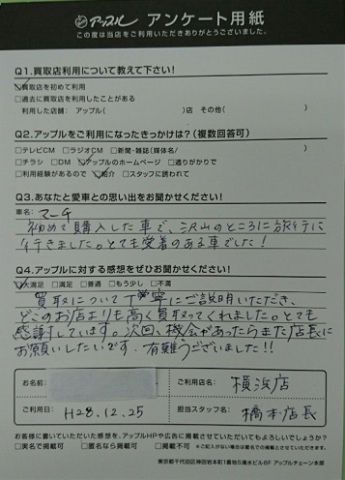 アップル アンケート用紙
この度は当店をご利用いただきありがとうございました。
Q1.買取店利用について教えて下さい!
☑買取店を初めて利用
□過去に買取店を利用したことがある
利用した店舗: アップル( )店 その他( )
Q2.アップルをご利用になったきっかけは?(複数回答可)
□テレビCM □ラジオCM □新聞・雑誌(媒体名/ )
□チラシ □DM ☑アップルのホームページ □通りがかりで
□利用経験があるので ☑紹介 □スタッフに誘われて
Q3.あなたと愛車との思い出をお聞かせください!
車名: マーチ
初めて購入した車で、沢山のところに旅行に
行きました。とても愛着のある車でした!
Q4.アップルに対する感想をぜひお聞かせください!
☑大満足 □満足 □普通 □もう少し □不満
買取について丁寧にご説明いただき、
どこのお店よりも高く買取ってくれました。とても
感謝しています。次回、機会があったらまた店長に
お願いしたいです。有難うございました!!
お名前:
ご利用店名: 横浜店
ご利用日: H28.12.25
担当スタッフ名: 橋本店長
お客様に書いていただいた感想を、アップルHPや広告に掲載させていただいてもよろしいでしょうか?
□実名で掲載可 □匿名なら掲載可 □掲載不可
東京都千代田区神田佐本町1番地5
アップルチェーン本部